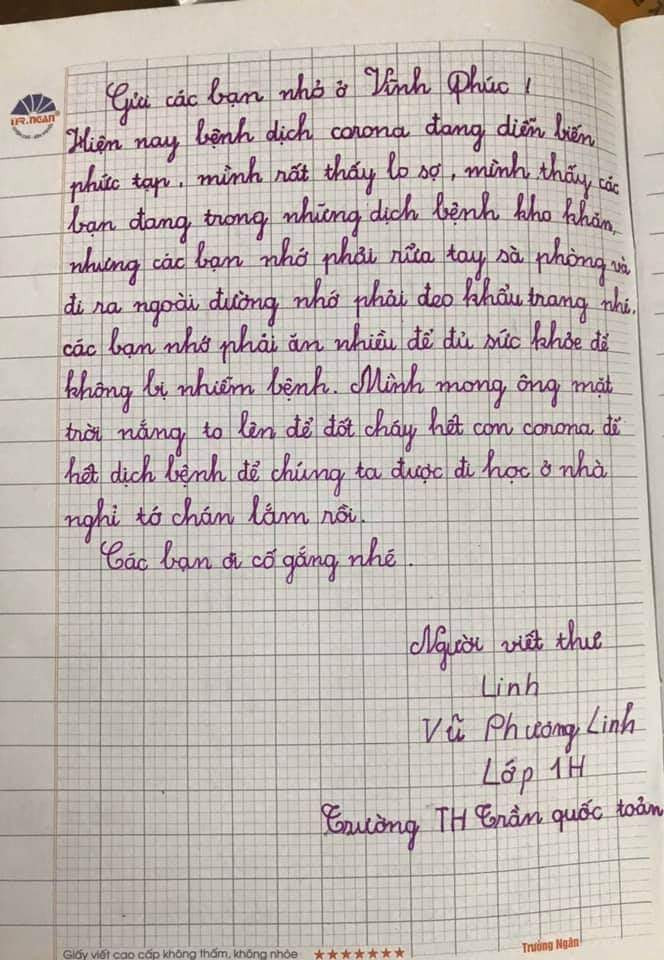 TR.NGAN
Gửi các bạn nhỏ ở Vĩnh Phúc !
Hiện nay bệnh dịch corona đang diễn biến
phức tạp, mình rất thấy lo sợ, mình thấy các
bạn đang trong những dịch bệnh kho khăn,
nhưng các bạn nhớ phải rửa tay sà phòng và
đi ra ngoài đường nhớ phải đeo khẩu trang nhé.
các bạn nhớ phải ăn nhiều để đủ sức khỏe để
không bị nhiễm bệnh. Mình mong ông mặt
trời nắng to lên để đốt cháy hết con corona để
hết dịch bệnh để chúng ta được đi học ở nhà
nghỉ tớ chán lắm rồi.
Các bạn ơi cố gắng nhé.
Người viết thư
Linh
Vũ Phương Linh
Lớp 1H
Trường TH Trần quốc toản
Giấy viết cao cấp không thấm, không nhòe ★★★★★★★ Trường Ngân